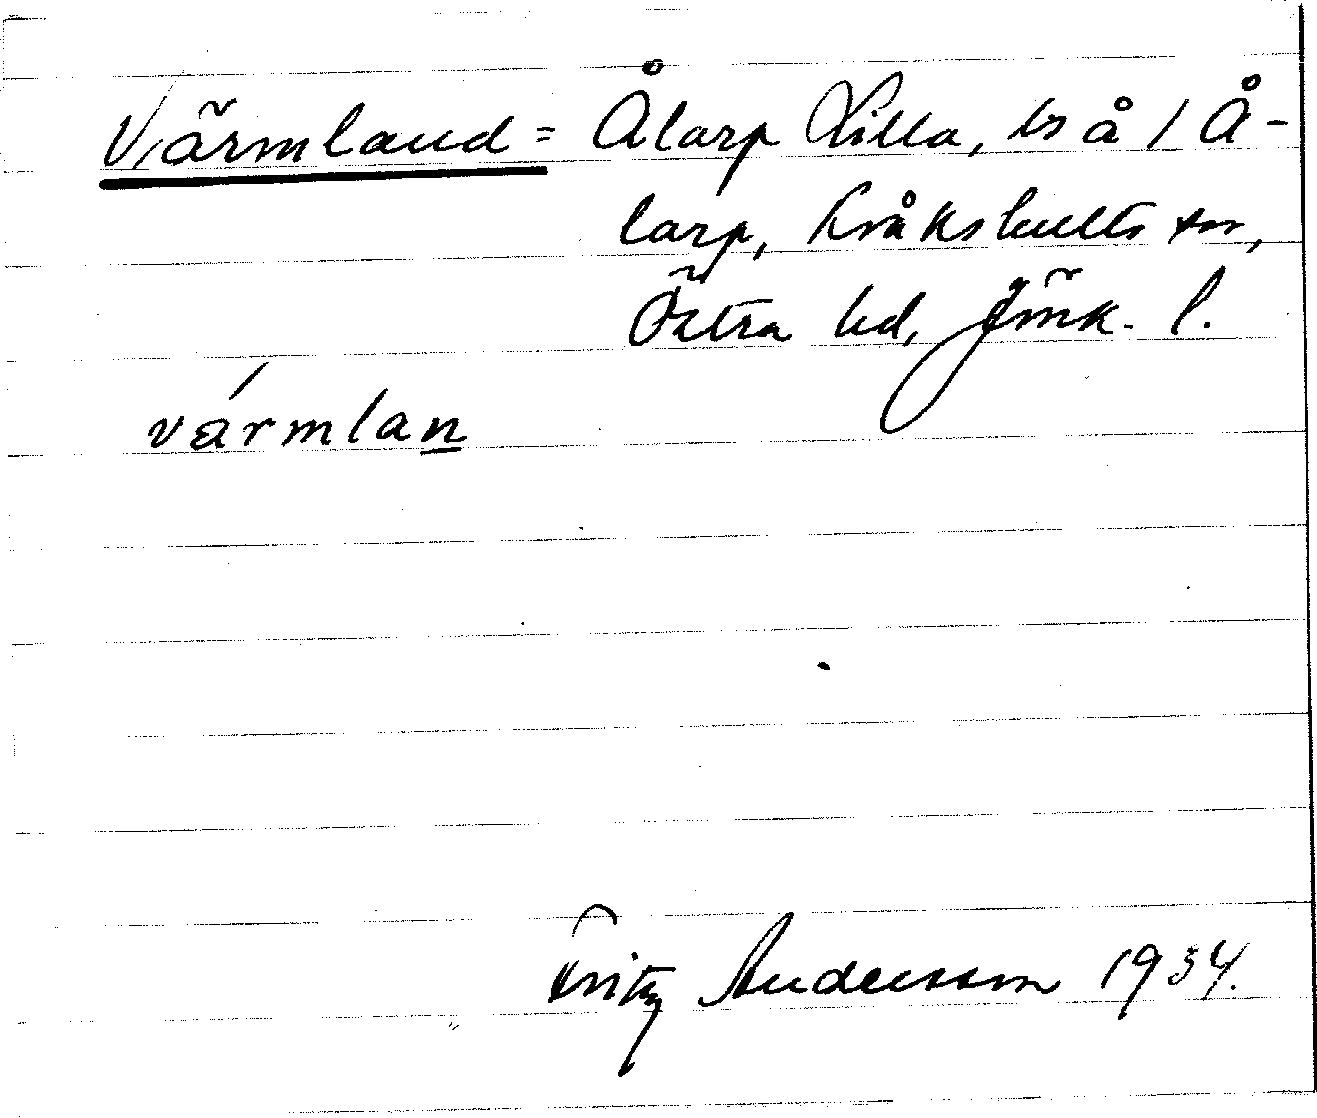 Värmland = Ålarp Lilla, bs å 1 Å-
larp, Kråkshults sn,
Östra hd, Jönk. l.
värmlan
Fritz Andersson 1934.